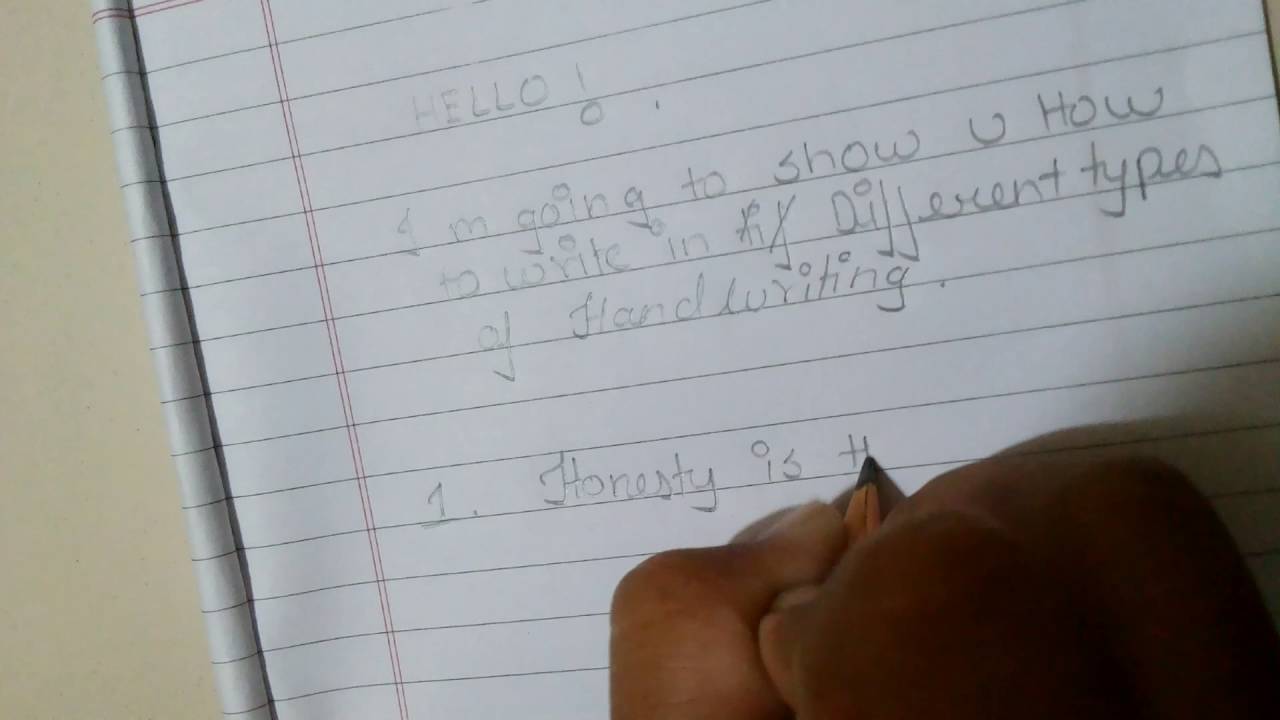 HELLO! .
I m going to show U How
to write in Different types
of Handwriting.
1. Honesty is